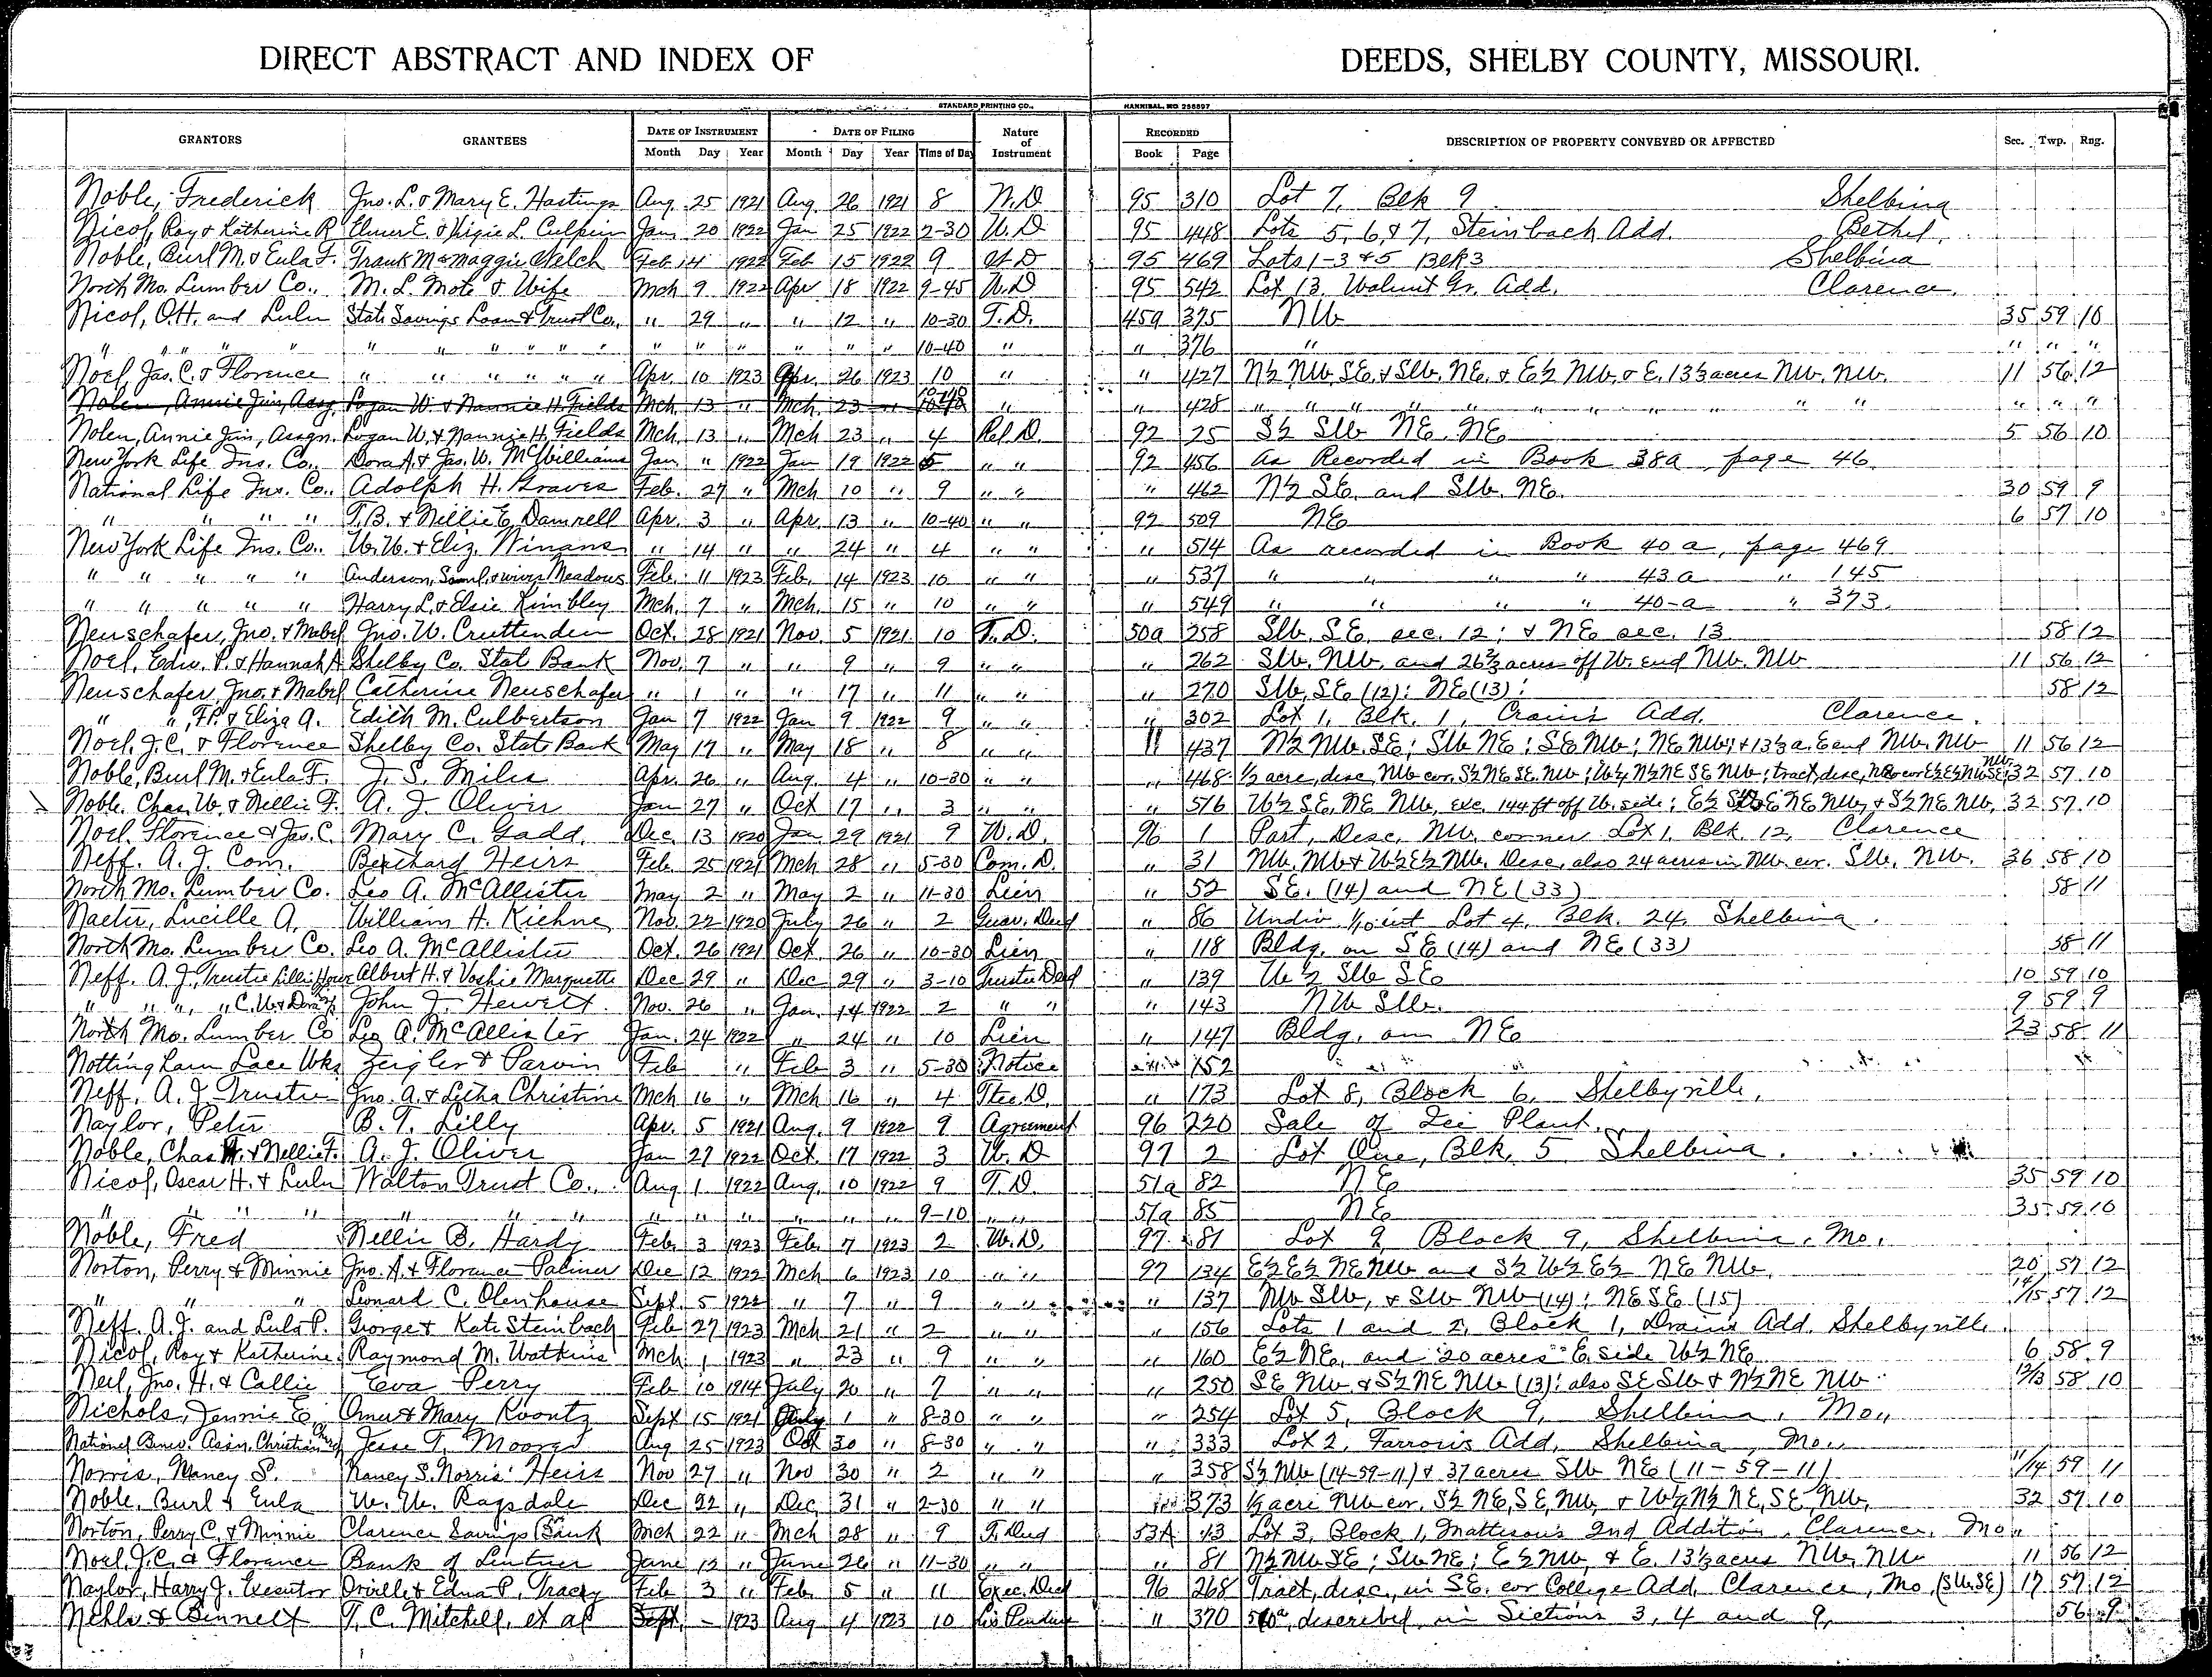 DIRECT ABSTRACT AND INDEX OF DEEDS, SHELBY COUNTY, MISSOURI.
STANDARD PRINTING CO., HANNIBAL, MO. 256897
GRANTORS GRANTEES DATE OF INSTRUMENT DATE OF FILING Nature of Instrument RECORDED DESCRIPTION OF PROPERTY CONVEYED OR AFFECTED Sec. Twp. Rng.
Month Day Year Month Day Year Time of Day Book Page
Noble, Frederick Jno. L. & Mary E. Hastings Aug. 25 1921 Aug. 26 1921 8 W.D 95 310 Lot 7, Blk 9 Shelbina
Nicol, Roy & Katherine R Elmer E. & Virgie L. Culpin Jan 20 1922 Jan 25 1922 2-30 W.D 95 448 Lots 5, 6, & 7, Steinbach Add. Bethel,
Noble, Burl M. & Eula F. Frank M & Maggie Welch Feb 14 1922 Feb. 15 1922 9 W D 95 469 Lots 1-3 & 5 Blk 3 Shelbina
North Mo. Lumber Co., M. L. Mote & Wife Mch 9 1922 Apr 18 1922 9-45 W.D 95 542 Lot 13, Walnut Gr. Add. Clarence.
Nicol, O.H. and Lulu State Savings Loan & Trust Co., " 29 " " 12 " 10-30 T.D. 45a 375 NW 35 59 10
" " " " " " " " " " " " " " " " " 10-40 " " 376 " " " "
Noel, Jas. C. & Florence " " " " " " Apr. 10 1923 Apr. 26 1923 10 " " 427 N½ NW. SE. & SW. NE. & E½ NW. & E. 13⅓ acres NW. NW. 11 56 12
Nolen, Annie Jim, Assg. Logan W. & Nannie H. Fields Mch. 13 " Mch. 23 " 10-40 " " 428 " " " " " " " " " " " "
Nolen, Annie Jim, Assgn. Logan W. & Nannie H. Fields Mch. 13 " Mch 23 " 4 Rel. D. 92 25 S½ SW NE. NE 5 56 10
New York Life Ins. Co., Dora A. & Jas. W. McWilliams Jan. " 1922 Jan 19 1922 5 " " 92 456 As Recorded in Book 38a page 46.
National Life Ins. Co., Adolph H. Graves Feb. 27 " Mch 10 " 9 " " " 462 N½ SE. and SW. NE. 30 59 9
" " " " T.B. & Nellie E. Damrell Apr. 3 " Apr. 13 " 10-40 " " 92 509 NE 6 57 10
New York Life Ins. Co., W. W. & Eliz. Winans " 14 " " 24 " 4 " " " 514 As recorded in Book 40a, page 469
" " " " " Anderson, Saml. & wives Meadows Feb. 11 1923 Feb. 14 1923 10 " " " 537 " " " " 43a " 145
" " " " " Harry L. & Elsie Kimbley Mch. 7 " Mch. 15 " 10 " " " 549 " " " " 40-a " 373.
Neuschafer, Jno. & Mabel Jno. W. Cruttenden Oct. 28 1921 Nov. 5 1921 10 T.D. 50a 258 SW. SE. sec. 12; & NE sec. 13 58 12
Noel, Edw. P. & Hannah A Shelby Co. State Bank Nov. 7 " " 9 " 9 " " " 262 SW. NW. and 26⅔ acres off W. end NW. NW 11 56 12
Neuschafer, Jno. & Mabel Catherine Neuschafer " 1 " " 17 " 11 " " " 270 SW. SE (12); NE (13); 58 12
" ", F.P. & Eliza A. Edith M. Culbertson Jan 7 1922 Jan 9 1922 9 " " " 302 Lot 1, Blk. 1, Crain's Add. Clarence.
Noel, J.C. & Florence Shelby Co. State Bank May 17 " May 18 " 8 " " " 437 N½ NW. SE; SW NE; SE NW; NE NW; & 13⅓ a. E end NW. NW 11 56 12
Noble, Burl M. & Eula F. J. S. Miles Apr. 26 " Aug. 4 " 10-30 " " " 468 ½ acre, desc, NW cor. S½ NE SE. NW; W½ N½ NE SE NW; tract, desc, 32 57 10
Noble, Chas. W. & Nellie F. A. J. Oliver Jan 27 " Oct 17 " 3 " " " 516 W½ SE, NE NW, exc. 144 ft off W. side; E½ NE NW, & S½ NE NW, 32 57 10
Noel, Florence & Jas. C. Mary C. Gadd. Dec. 13 1920 Jan 29 1921 9 W.D. 96 1 Part, Desc, NW. corner Lot 1, Blk. 12, Clarence
Neff. A. J. Com. Heirs Feb. 25 1921 Mch 28 " 5-30 Com. D. " 31 NW. NW & W½ E½ NW. Desc, also 24 acres in NW. cor. SW. NW. 36 58 10
North Mo. Lumber Co. Leo A. McAllister May 2 " May 2 " 11-30 Lien " 52 SE. (14) and NE (33) 58 11
Naeter, Lucille A. William H. Kiehne Nov. 22 1920 July 26 " 2 Guar. Deed " 86 Undiv. 1/10 int Lot 4, Blk. 24, Shelbina.
North Mo. Lumber Co. Leo A. McAllister Oct. 26 1921 Oct. 26 " 10-30 Lien " 118 Bldg. on SE (14) and NE (33) 58 11
Neff. A. J., Trustee Albert H. & Voshie Marquette Dec 29 " Dec 29 " 3-10 Trustee Deed " 139 W½ SW SE 10 59 10
" " ", " C.W. & Dora John J. Hewitt Nov. 26 " Jan. 14 1922 2 " " " 143 NW SW. 9 59 9
North Mo. Lumber Co Leo A. McAllister Jan. 24 1922 " 24 " 10 Lien " 147 Bldg. on NE 23 58 11
Nottingham Lace Wks Zeigler & Parvin Feb " Feb 3 " 5-30 Notice 152
Neff. A. J. Trustee Jno. A. & Letha Christine Mch 16 " Mch 16 " 4 Ttee D. " 173 Lot 8, Block 6, Shelbyville,
Naylor, Peter B. T. Lilly Apr. 5 1921 Aug. 9 1922 9 Agreement 96 220 Sale of Ice Plant.
Noble, Chas W. & Nellie F. A. J. Oliver Jan 27 1922 Oct. 17 1922 3 W. D 97 2 Lot One, Blk, 5 Shelbina.
Nicol, Oscar H. & Lulu Walton Trust Co., Aug 1 1922 Aug. 10 1922 9 T.D. 51a 82 NE 35 59 10
" " " " " " " " " " " " " 9-10 " " 51a 85 NE 35 59 10
Noble, Fred Nellie B. Hardy Feb. 3 1923 Feb. 7 1923 2 W.D. 97 81 Lot 9, Block 9, Shelbina, Mo.
Norton, Perry & Minnie Jno. A. & Florence Palmer Dec 12 1922 Mch 6 1923 10 " " 97 134 E½ E½ NE NW and S½ W½ E½ NE NW. 20 57 12
" " " Leonard C. Olenhouse Sept. 5 1922 " 7 " 9 " " " 137 NW SW, & SW NW (14); NE SE (15) 14/15 57 12
Neff. A. J. and Lula P. George & Kate Steinbach Feb 27 1923 Mch 21 " 2 " " " 156 Lots 1 and 2, Block 1, Drain's Add. Shelbyville.
Nicol, Roy & Katherine Raymond M. Watkins Mch 1 1923 " 23 " 9 " " " 160 E½ NE, and 20 acres E. side W½ NE 6 58 9
Neil, Jno. H. & Callie Eva Perry Feb 10 1914 July 20 " 7 " " " 250 SE NW & S½ NE NW (13); also SE SW & N½ NE NW 12/13 58 10
Nichols, Jennie E Omer & Mary Koontz Sept 15 1921 July 1 " 8-30 " " " 254 Lot 5, Block 9, Shelbina, Mo.,
National Benev. Assn. Christian Church Jesse T. Moore Aug 25 1923 Oct 30 " 8-30 " " " 333 Lot 2, Farrow's Add, Shelbina, Mo.,
Norris, Nancy S. Nancy S. Norris' Heirs Nov 27 " Nov 30 " 2 " " " 358 S½ NW (14-59-11) & 37 acres SW NE (11-59-11) 11/14 59 11
Noble, Burl & Eula W. W. Ragsdale Dec 22 " Dec. 31 " 2-30 " " 373 ½ acre NW cor. S½ NE, SE, NW, & W½ N½ NE, SE NW, 32 57 10
Norton, Perry C. & Minnie Clarence Savings Bank Mch 22 " Mch 28 " 9 T. Deed 53A 43 Lot 3, Block 1, Matteson's 2nd Addition, Clarence, Mo.,
Noel, J.C. & Florence Bank of Lentner June 12 " June 26 " 11-30 " " " 81 N½ NW SE; SW NE; E½ NW, & E. 13⅓ acres NW, NW 11 56 12
Naylor, Harry J. Executor Orville & Edna P. Tracy Feb 3 " Feb. 5 " 11 Exec. Deed 96 268 Tract, desc, in SE. cor College Add, Clarence, Mo, (SW SE) 17 57 12
Nehls & Bennett T. C. Mitchell, et al Sept. - 1923 Aug 4 1923 10 Lis Pendens " 370 described in Sections 3, 4 and 9, 56 9